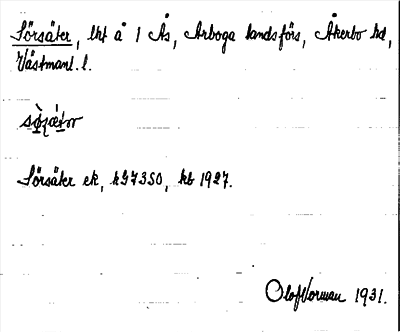 Sörsäter, lht å 1 Ås, Arboga landsförs, Åkerbo hd,
Västmanl. l.
Sörsäter ek, kG7350, kb 1927.
Olof Vorman 1931.